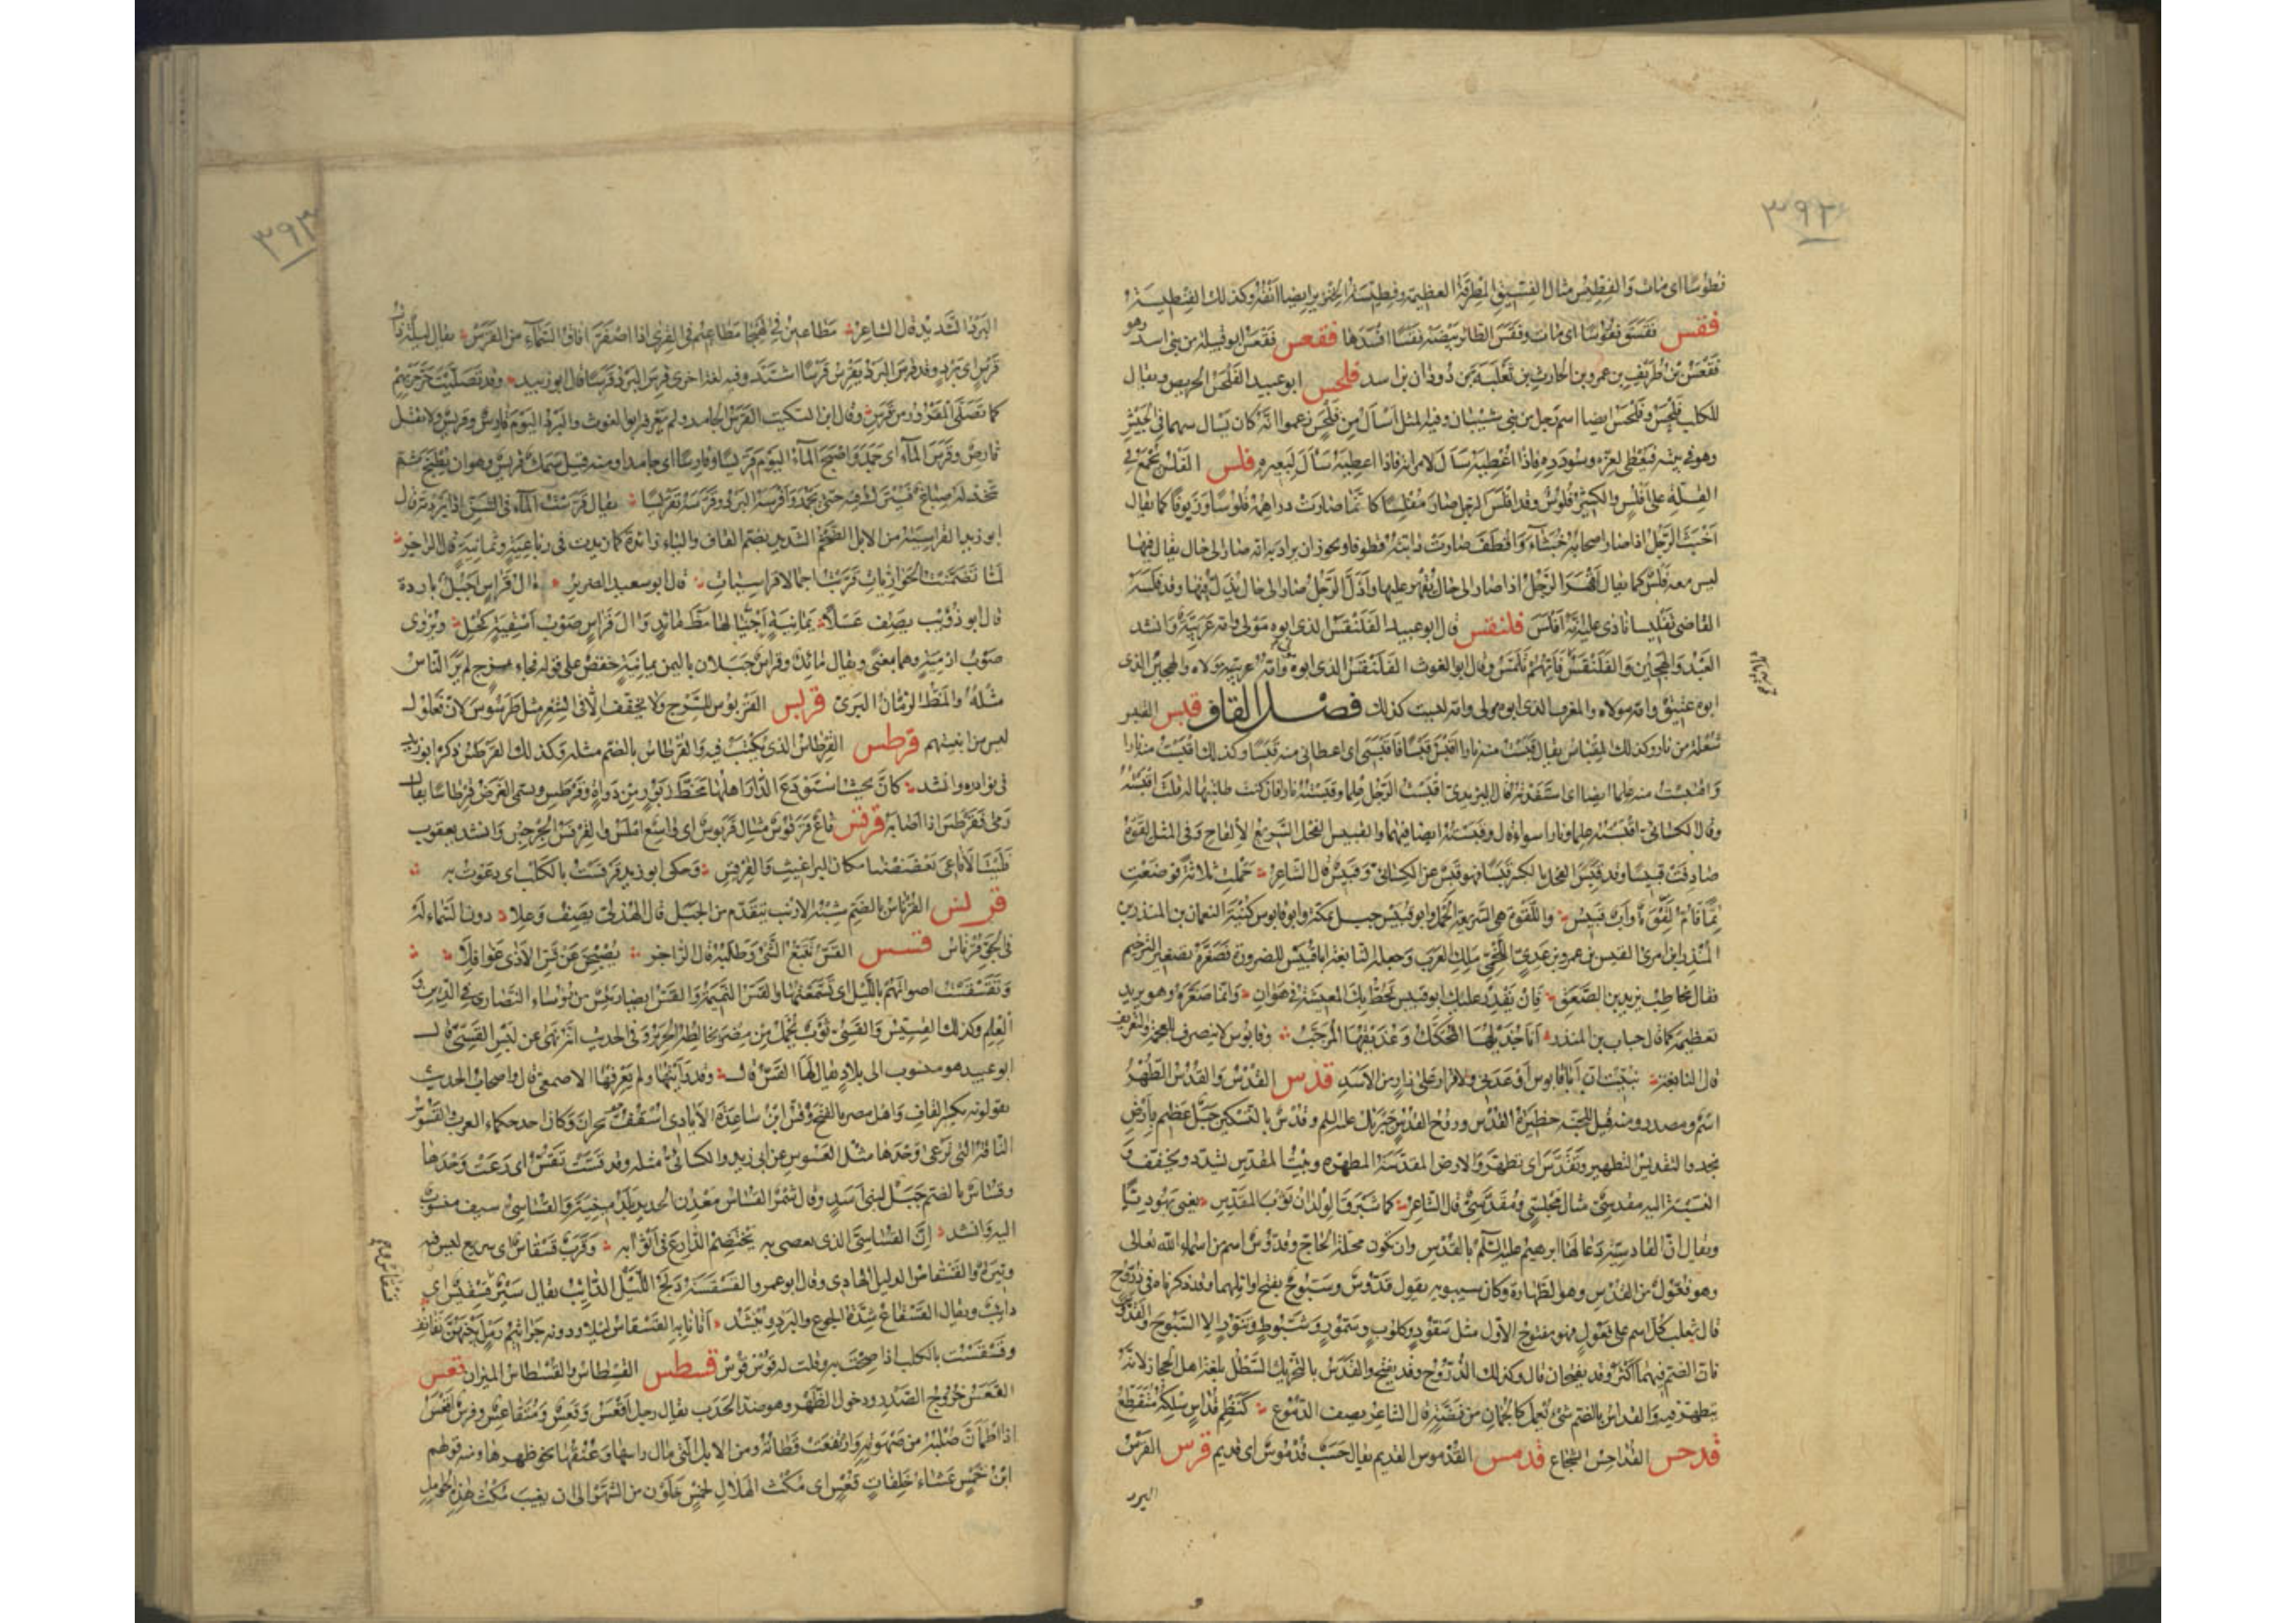 ٣٩٢
فطوسا اى مات والفطيس مثال الفسيق المطرقة العظيمة وفطيسة الخنزير ايضا انفه وكذلك الفنطيسة
فقس فقس فقوسا اى مات وفقس الطائر بيضه فقسا افسدها فقعس فقعس ابو قبيلة من بنى اسد وهو
فقعس بن طريف بن عمرو بن الحارث بن ثعلبة بن دودان بن اسد فلحس ابو عبيد الفلحس الحريص ويقال
للكلب فلحس وفلحس ايضا اسم رجل من بنى شيبان وفيه المثل اسأل من فلحس زعموا انه كان يسأل سهما فى الجيش
وهو فى بيته فيعطى لعزه وسودده فاذا اعطيه سأل لامراته فاذا اعطيه سأل لبعيره فلس الفلس يجمع فى
القلة على افلس والكثير فلوس وقد افلس الرجل صار مفلسا كانما صارت دراهمه فلوسا وزيوفا كما يقال
اخبث الرجل اذا صار اصحابه خبثاء واقطف صارت دابته قطوفا ويجوز ان يراد به انه صار الى حال يقال فيها
ليس معه فلس كما يقال اقهر الرجل اذا صار الى حال يقهر عليها واذل الرجل صار الى حال يذل فيها وقد فلسه
القاضى تفليسا نادى عليه انه افلس فلنقس قال ابو عبيد الفلنقس الذى ابوه مولى وامه عربية وانشد
العبد والهجين والفلنقس فايهم تلمس وقال ابو الغوث الفلنقس الذى ابوه وامه عربية ولاه والهجين الذى
ابوه عتيق وامه مولاه والمقرف الذى ابوه مولى وامه ليست كذلك فصل القاف قبس القبس
شعلة من نار وكذلك المقباس يقال قبست منه نارا اقبس قبسا فاقبسنى اى اعطانى منه قبسا وكذلك اقتبست منه نارا
واقتبست منه علما ايضا اى استفدته قال اليزيدى اقبست الرجل علما وقبسته نارا فان كنت طلبتها له قلت اقبسته
وقال الكسائى اقبسته علما ونارا سواء قال وقبسته ايضا فيهما والقبيس الفحل السريع الالقاح وفى المثل لقوة
صادفت قبيسا وقد قبس الفحل بالكسر قبسا فهو قبس عن الكسائى وقبيس قال الشاعر حملت ثلاثة فوضعت
تما فام لقوة واب قبيس واللقوة هى السريعة الحمل وابو قبيس جبل بمكة وابو قابوس كنية النعمان بن المنذر بن
المنذر بن امرئ القيس بن عمرو بن عدى اللخمى ملك العرب وجعله النابغة ابا قبيس للضرورة فصغره تصغير الترخيم
فقال يخاطب يزيد بن الصعق فان يقدر عليك ابو قبيس تحط بك المعيشة فى هوان وانما صغره وهو يريد
تعظيمه كما قال حباب بن المنذر انا جذيلها المحكك وعذيقها المرجب وقابوس لا ينصرف للعجمة والتعريف
قال النابغة نبئت ان ابا قابوس اوعدنى ولا قرار على زار من الاسد قدس القدس والقدس الطهر
اسم ومصدر ومنه قيل للجنة حظيرة القدس وروح القدس جبريل عليه السلم وقدس بالتسكين جبل عظيم بارض
نجد والتقديس التطهير وتقدس اى تطهر والارض المقدسة المطهره وبيت المقدس يشدد ويخفف و
النسبة اليه مقدسى مثال مجلسى ومقدسى قال الشاعر كما شبرق الولدان ثوب المقدس يعنى يهوديا
ويقال ان القادسية دعا لها ابرهيم عليه السلم بالقدس وان تكون محلة الحاج وقدوس اسم من اسماء الله تعالى
وهو فعول من القدس وهو الطهارة وكان سيبويه يقول قدوس وسبوح بفتح اوائلهما وقد ذكرناه فى ذروح
قال ثعلب كل اسم على فعول فهو مفتوح الاول مثل سفود وكلوب وسمور وشبوط وتنور الا السبوح والقدوس
فان الضم فيهما اكثر وقد يفتحان قال وكذلك الذروح وقد يفتح والقدس بالتحريك السطل بلغة اهل الحجاز لانه
يتطهر فيه والقداس بالضم شئ يعمل كالجمان من فضة قال الشاعر يصف الدموع كنظم قداس سلكه متقطع
قدحس القداحس الشجاع قدمس القدموس القديم يقال حسب قدموس اى قديم قرس القرس
البرد
٣٩٣
البرد الشديد قال الشاعر مطاعين فى الهيجا مطاعيم فى القرى اذا اصفر افاق السماء من القرس يقال ليلة ذات
قرس اى برد وقد قرس البرد يقرس قرسا اشتد وفيه لغة اخرى قرس البرد قرسا قال ابو زبيد وقد تصليت حر حربهم
كما تصلى المقرور من قرس وقال ابن السكيت القرس الجامد ولم يعرفه ابو الغوث والبرد اليوم قارس وقريس ولا تقل
قارص وقرس الماء اى جمد واصبح الماء اليوم قريسا وقارسا اى جامدا ومنه قيل سمك قريس وهو ان يطبخ ثم
تتخذ له صباغ فيترك فيه حتى يجمد واقرسه البرد وقرسه تقريسا يقال قرست الماء فى الشن اذا بردته قال
ابو زيد القراسية من الابل الضخم الشديد بضم القاف والياء زائدة كما زيدت فى رباعية وثمانية قال الراجز
لما تضمنت الحواريات قربت اجمالا قراسيات قال ابو سعيد الضرير ال قراس اجبل باردة
قال ابو ذؤيب يصف عسلا يمانية احيا لها مظ مائد وال قراس صوب اسقية كحل ويروى
صوب ارمية وهما بمعنى ويقال مائد وقراس جبلان باليمن يمانية خفض على قوله فجاء بمزج لم ير الناس
مثله والمظ الرمان البرى قربس القربوس للسرج ولا يخفف الا فى الشعر مثل طرسوس لان فعلول
ليس من ابنيتهم قرطس القرطاس الذى يكتب فيه والقرطاس بالضم مثله وكذلك القرطس ذكره ابو زيد
فى نوادره وانشد كان بحيث استودع الدار اهلها مخط زبور من دواة وقرطس ويسمى الغرض قرطاسا يقال
رمى فقرطس اذا اصابه قرقس قاع قرقوس مثال قربوس اى واسع املس والقرقس الجرجس وانشد يعقوب
فليت الافاعى تعضضننا مكان البراغيث والقرقس وحكى ابو زيد قرقست بالكلب اى دعوت به
قرنس القرناس بالضم شبيه الانف يتقدم من الجبل قال الهذلى يصف وعلا دون السماء له
فى الجو قرناس قسس القس تتبع الشئ وطلبه قال الراجز يصبحن عن قس الاذى غوافلا
وتقسقست اصواتهم بالليل اى تسمعتها والقس النميمة والقس ايضا رئيس من رؤساء النصارى فى الدين و
العلم وكذلك القسيس والقسى ثوب يحمل من مصر يخالطه الحرير وفى الحديث انه نهى عن لبس القسى قال
ابو عبيد هو منسوب الى بلاد يقال لها القس قال وقد رايتها ولم يعرفها الاصمعى قال واصحاب الحديث
يقولونه بكسر القاف واهل مصر بالفتح وقس ابن ساعدة الايادى اسقف نجران وكان احد حكماء العرب والقسوس
الناقة التى ترعى وحدها مثل العسوس عن ابى زيد والكسائى مثله وقد قست تقس اى رعت وحدها
وقساس بالضم جبل لبنى اسد وقال شمر القساس معدن الحديد بارمينية والقساسى سيف منسوب
اليه وانشد ان القساسى الذى يعصى به يختصم الدارع فى اثوابه وقرب قسقاس اى سريع ليس فيه
وتيرة والقسقاس الدليل الهادى وقال ابو عمرو القسقسة دلج الليل الدائب يقال سير قسقيس اى
دائب ويقال القسقاس شدة الجوع والبرد وينشد اتانا به القسقاس ليلا ودونه جراثيم رمل بينهن نفانف
وقسقست بالكلب اذا صحت به وقلت له قوس قوس قسطس القسطاس والقسطاس الميزان قعس
القعس خروج الصدر ودخول الظهر وهو ضد الحدب يقال رجل اقعس وقعس ومتقاعس وفرس اقعس
اذا اطمأن صلبه من صهوته وارتفعت قطاته ومن الابل التى مال راسها وعنقها نحو ظهرها ومنه قولهم
ابن خمس عشاء خلفات قعس اى مكث الهلال لخمس خلون من الشهر الى ان يغيب مكث هذه الحوامل